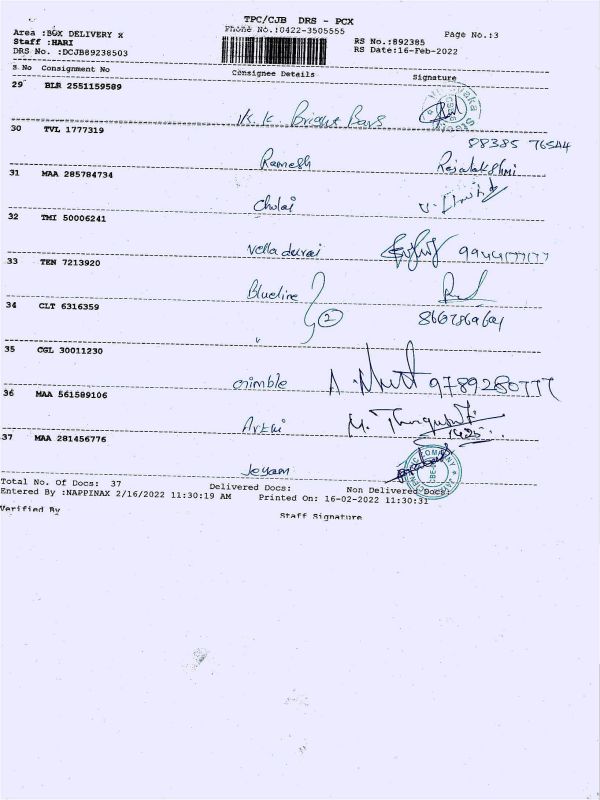 TPC/CJB DRS - PCX
Area :BOX DELIVERY x Phone No.:0422-3505555 Page No.:3
Staff :HARI RS No.:892385
DRS No. :DCJB89238503 RS Date:16-Feb-2022
S.No Consignment No Consignee Details Signature
29 BLR 2551159589
V.K.K. Bright Bars
30 TVL 1777319 88385 76544
Ramesh Rajalakshmi
31 MAA 285784734
Cholai
32 TMI 50006241
Velladurai
33 TEN 7213920
Blueline
34 CLT 6316359
2
35 CGL 30011230
crimble 9789280777
36 MAA 561589106
37 MAA 281456776
Jeyam
Total No. Of Docs: 37 Delivered Docs: Non Delivered Docs:
Entered By :NAPPINAX 2/16/2022 11:30:19 AM Printed On: 16-02-2022 11:30:31
Verified By Staff Signature